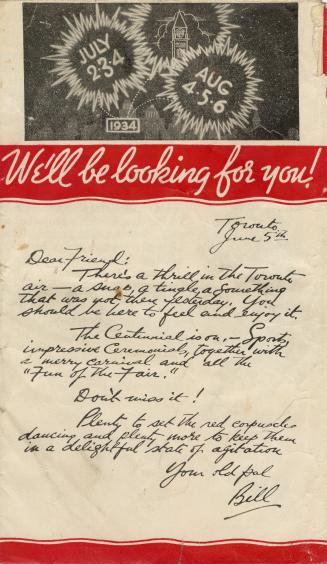 JULY
2·3·4
AUG
4·5·6
1934
We'll be looking for you!
Toronto
June 5th
Dear Friend:
There's a thrill in the Toronto
air – a snap, a tingle, a something
that was not there yesterday. You
should be here to feel and enjoy it.
The Centennial is on, – Sports,
impressive Ceremonials, together with
a merry carnival and all the
"Fun of the Fair."
Don't miss it!
Plenty to set the red corpuscles
dancing and plenty more to keep them
in a delightful state of agitation
Your old pal
Bill